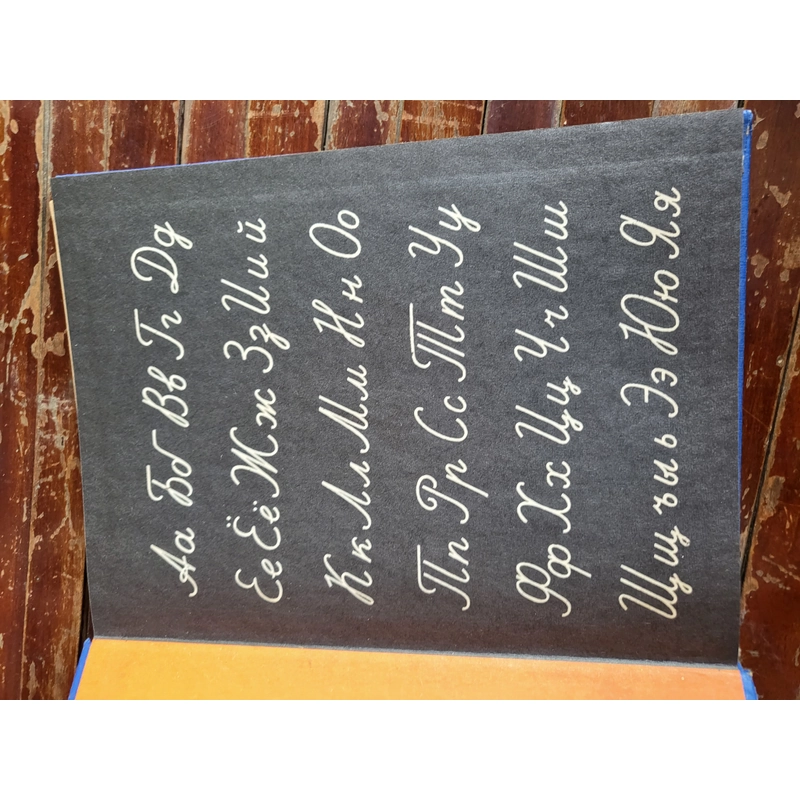 Аа Бб Вв Гг Дд
Ее Ёё Жж Зз Ии й
Кк Лл Мм Нн Оо
Пп Рр Сс Тт Уу
Фф Хх Цц Чч Шш
Щщ ъ ы ь Ээ Юю Яя